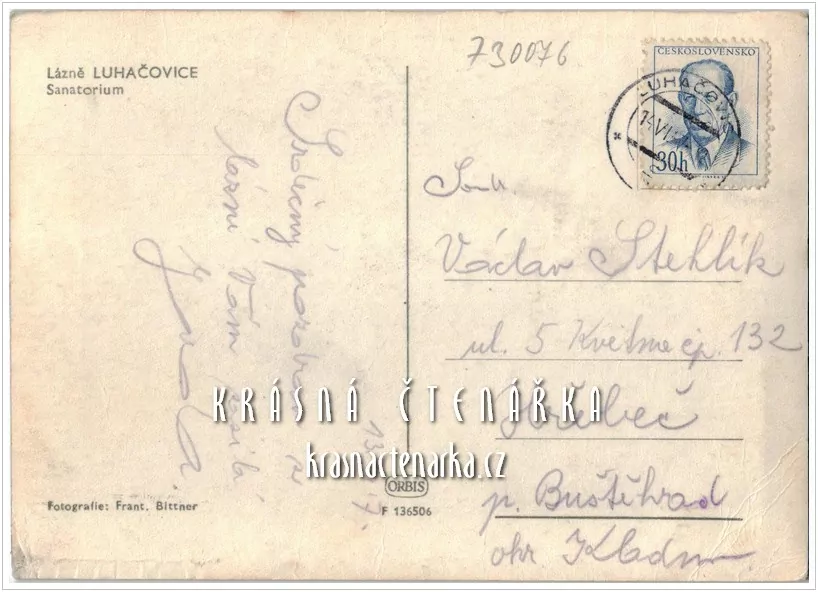 730076
Lázně LUHAČOVICE
Sanatorium
ČESKOSLOVENSKO
30h
LUHAČOVICE
14.VI
Srdečný pozdrav z
lázní Vám
Jarda
13
Soudr.
Václav Stehlík
ul. 5 Května čp. 132
Hřebeč
p. Buštěhrad
okr Kladno
KRÁSNÁ ČTENÁŘKA
krasnactenarka.cz
ORBIS
F 136506
Fotografie: Frant. Bittner